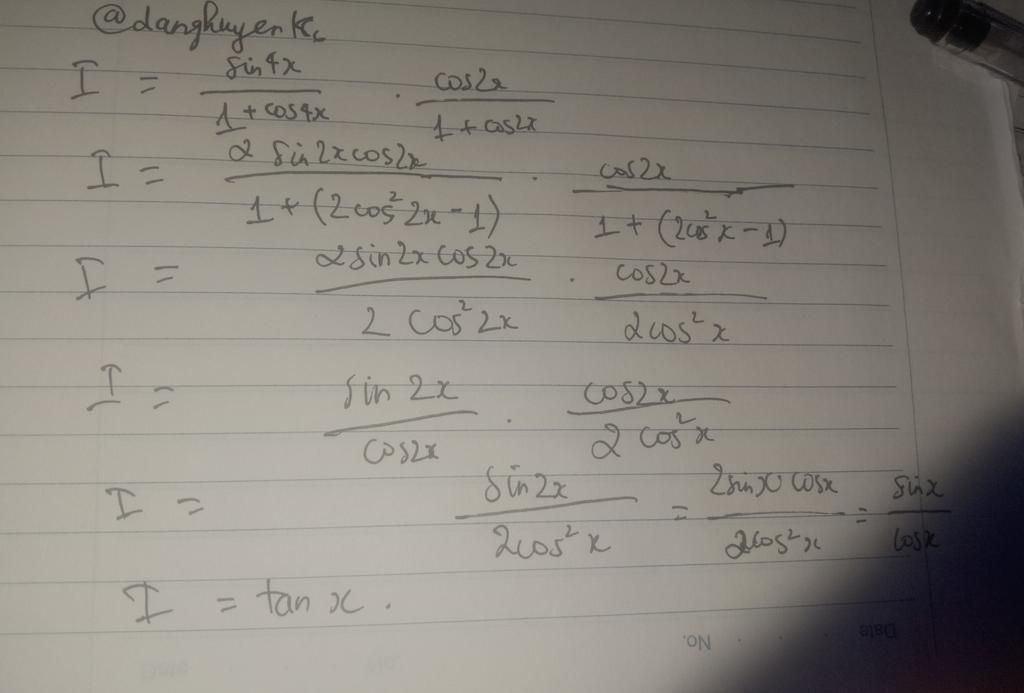 @danghuyenKc
I = sin4x / 1 + cos4x . cos2x / 1 + cos2x
I = 2 sin2xcos2x / 1 + (2cos²2x - 1) . cos2x / 1 + (2cos²x - 1)
I = 2sin2x cos2x / 2 cos²2x . cos2x / 2cos²x
I = sin 2x / cos2x . cos2x / 2 cos²x
I = sin2x / 2cos²x = 2sinx cosx / 2cos²x = sinx / cosx
I = tan x .
No. Date